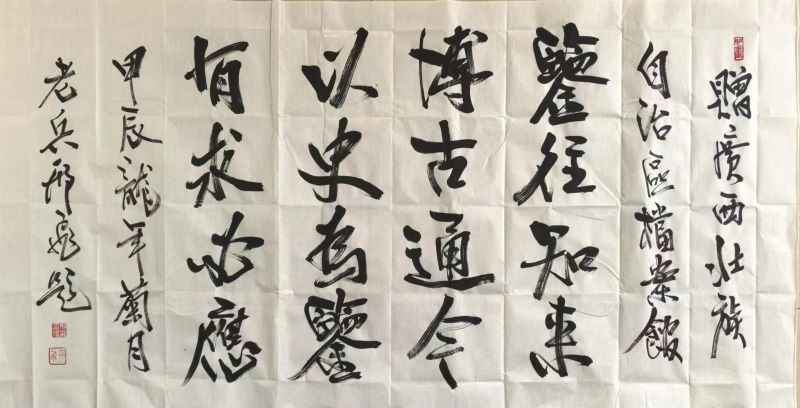 贈廣西壯族
自治區檔案館
鑒往知來
博古通今
以史為鑒
有求必應
甲辰龍年蘭月
老兵邢飛題